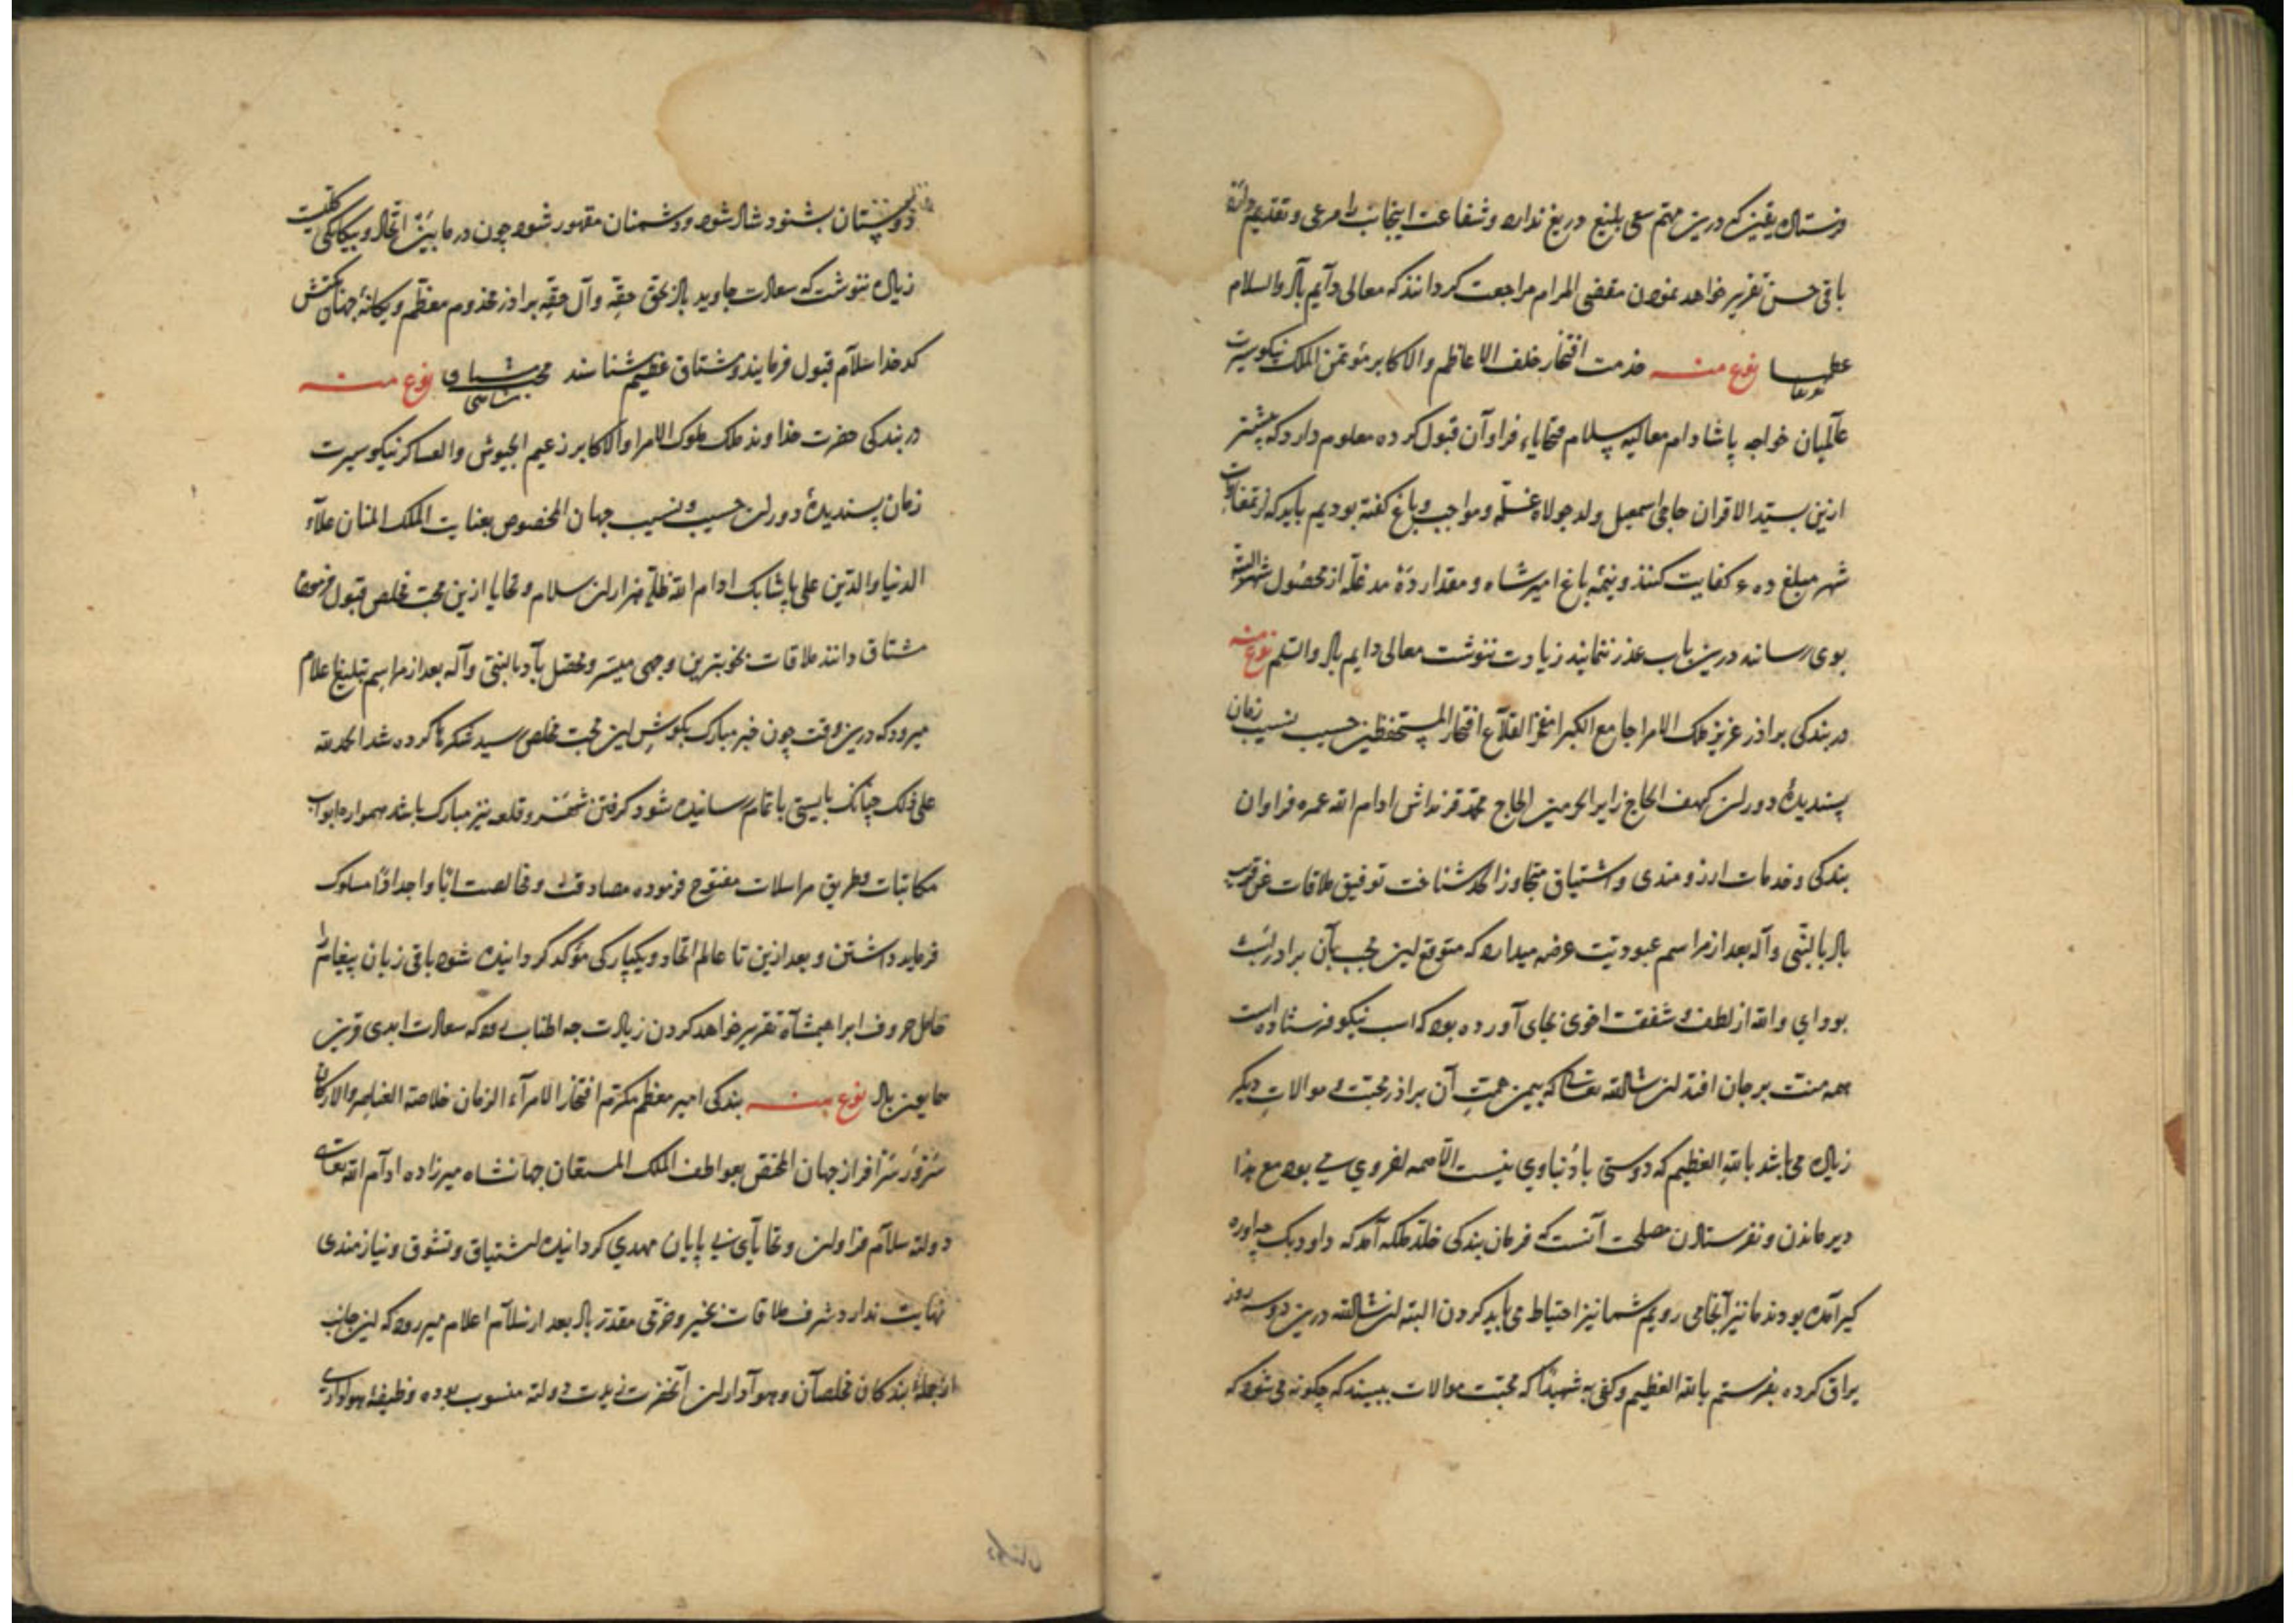 فرستاد یقین که درین مهم سعی بلیغ دریغ ندارد و شفاعت اینجانب را مرعی و تقدیم
باقی حسن تقریر خواهد نمودن مقضی المرام مراجعت گردانند که معالی دایم باد والسلام
نوع منه خدمت افتخار خلف الاعاظم والاکابر مؤتمن الملک نیکو سیرت
عالمیان خواجه پاشا دام معالیه سلام و تحایاء فراوان قبول کرده معلوم دارد که پیشتر
ازین بسید الاقران حاجی اسمعیل ولد جولاه غله و مواجب و باغ گفته بودیم باید که از تمغاوات
شهر مبلغ ده کفایت کنند و نیمه باغ امیرشاه و مقدار ده مد غله از محصول
بوی رسانند درین باب عذر ننمایند زیادت ننوشت معالی دایم باد والسلم نوع منه
در بندگی براذر عزیز ملک الامرا جامع الکبرا مفخر القلاع افتخار المستحفظین حسیب نسیب زمان
پسندیدهٔ دوران کهف الحاج زایر الحرمین الحاج محمد ادام الله عمره فراوان
بندگی و خدمات ارزومندی و اشتیاق متجاوز الحد شناخت توفیق ملاقات عن قریب
باد بالنبی و آله بعد از مراسم عبودیت عرضه میدارد که متوقع این محب بآن برادر
بود ای والله از لطف و شفقت اخوی بجای آورده بود که اسب نیکو فرستاده است
همه منت بر جان افتد ان شاالله تعالی که بیمن همت آن براذر محبت و موالات دیگر
زیاده می باشد بالله العظیم که دوستی با دنیاوی نیست الا همه اخروی می بود مع هذا
دیر ماندن و نفرستادن مصلحت آنست که فرمان بندگی خلد ملکه آمد که داود بک
گیر آمده بودند ما نیز آنجا می رویم شما نیز احتیاط می باید کردن البته ان شاالله درین دو سه روز
یراق کرده بفرستم بالله العظیم و کفی به شهیدا که محبت موالات ببینند که چگونه می شود که
دوستان بشنود شاد شود و دشمنان مقهور شود چون در ما بین اتحاد و یگانگی کلیست
زیاده ننوشت که سعادت جاوید باد بحق حقه و آل حقه براذر مخذوم معظم و یگانهٔ جهان
کدخدا سلام قبول فرمایند و مشتاق عظیم شناسند نوع منه
در بندگی حضرت خداوند ملک ملوک الامرا والاکابر زعیم الجیوش والعساکر نیکو سیرت
زمان پسندیدهٔ دوران حسیب و نسیب جهان المخصوص بعنایت الملک المنان علاء
الدنیا والدین علی پاشا بک ادام الله ظله هزاران سلام و تحایا ازین محب مخلص قبول فرموده
مشتاق دانند ملاقات بخوبترین وجهی میسر و محصل باد بالنبی و آله بعد از مراسم تبلیغ اعلام
میرود که درین وقت چون خبر مبارک بگوش این محب مخلص رسید شکرها کرده شد الحمدلله
علی ذلک چنانک بایستی باتمام رسانیده شود گرفتن و قلعه نیز مبارک باشد همواره ابواب
مکاتبات و طریق مراسلات مفتوح فرموده مصادقت و مخالصت ابا و اجدادا مسلوک
فرماید داشتن و بعد ازین تا عالم اتحاد و یکبارگی مؤکد گردانیده شود باقی زبان پیغام را
حامل حروف ابراهیمشاه تقریر خواهد کردن زیادت چه اطناب رود که سعادت ابدی قرین
همایون باد نوع منه بندگی امیر معظم مکرم افتخار الامرآء الزمان خلاصة العناصر والارکان
سرور سرافراز جهان المختص بعواطف الملک المستعان جهانشاه میرزاده ادام الله تعالی
دولته سلام فراوان و تحایای بی پایان مهدی گردانیده اشتیاق و تشوق و نیازمندی
نهایت ندارد شرف ملاقات بخیر و خرمی مقدر باد بعد از سلام اعلام میرود که این جانب
از جملهٔ بندگان مخلصان و هواداران آنحضرت دولته منسوب بوده وظیفهٔ هواداری